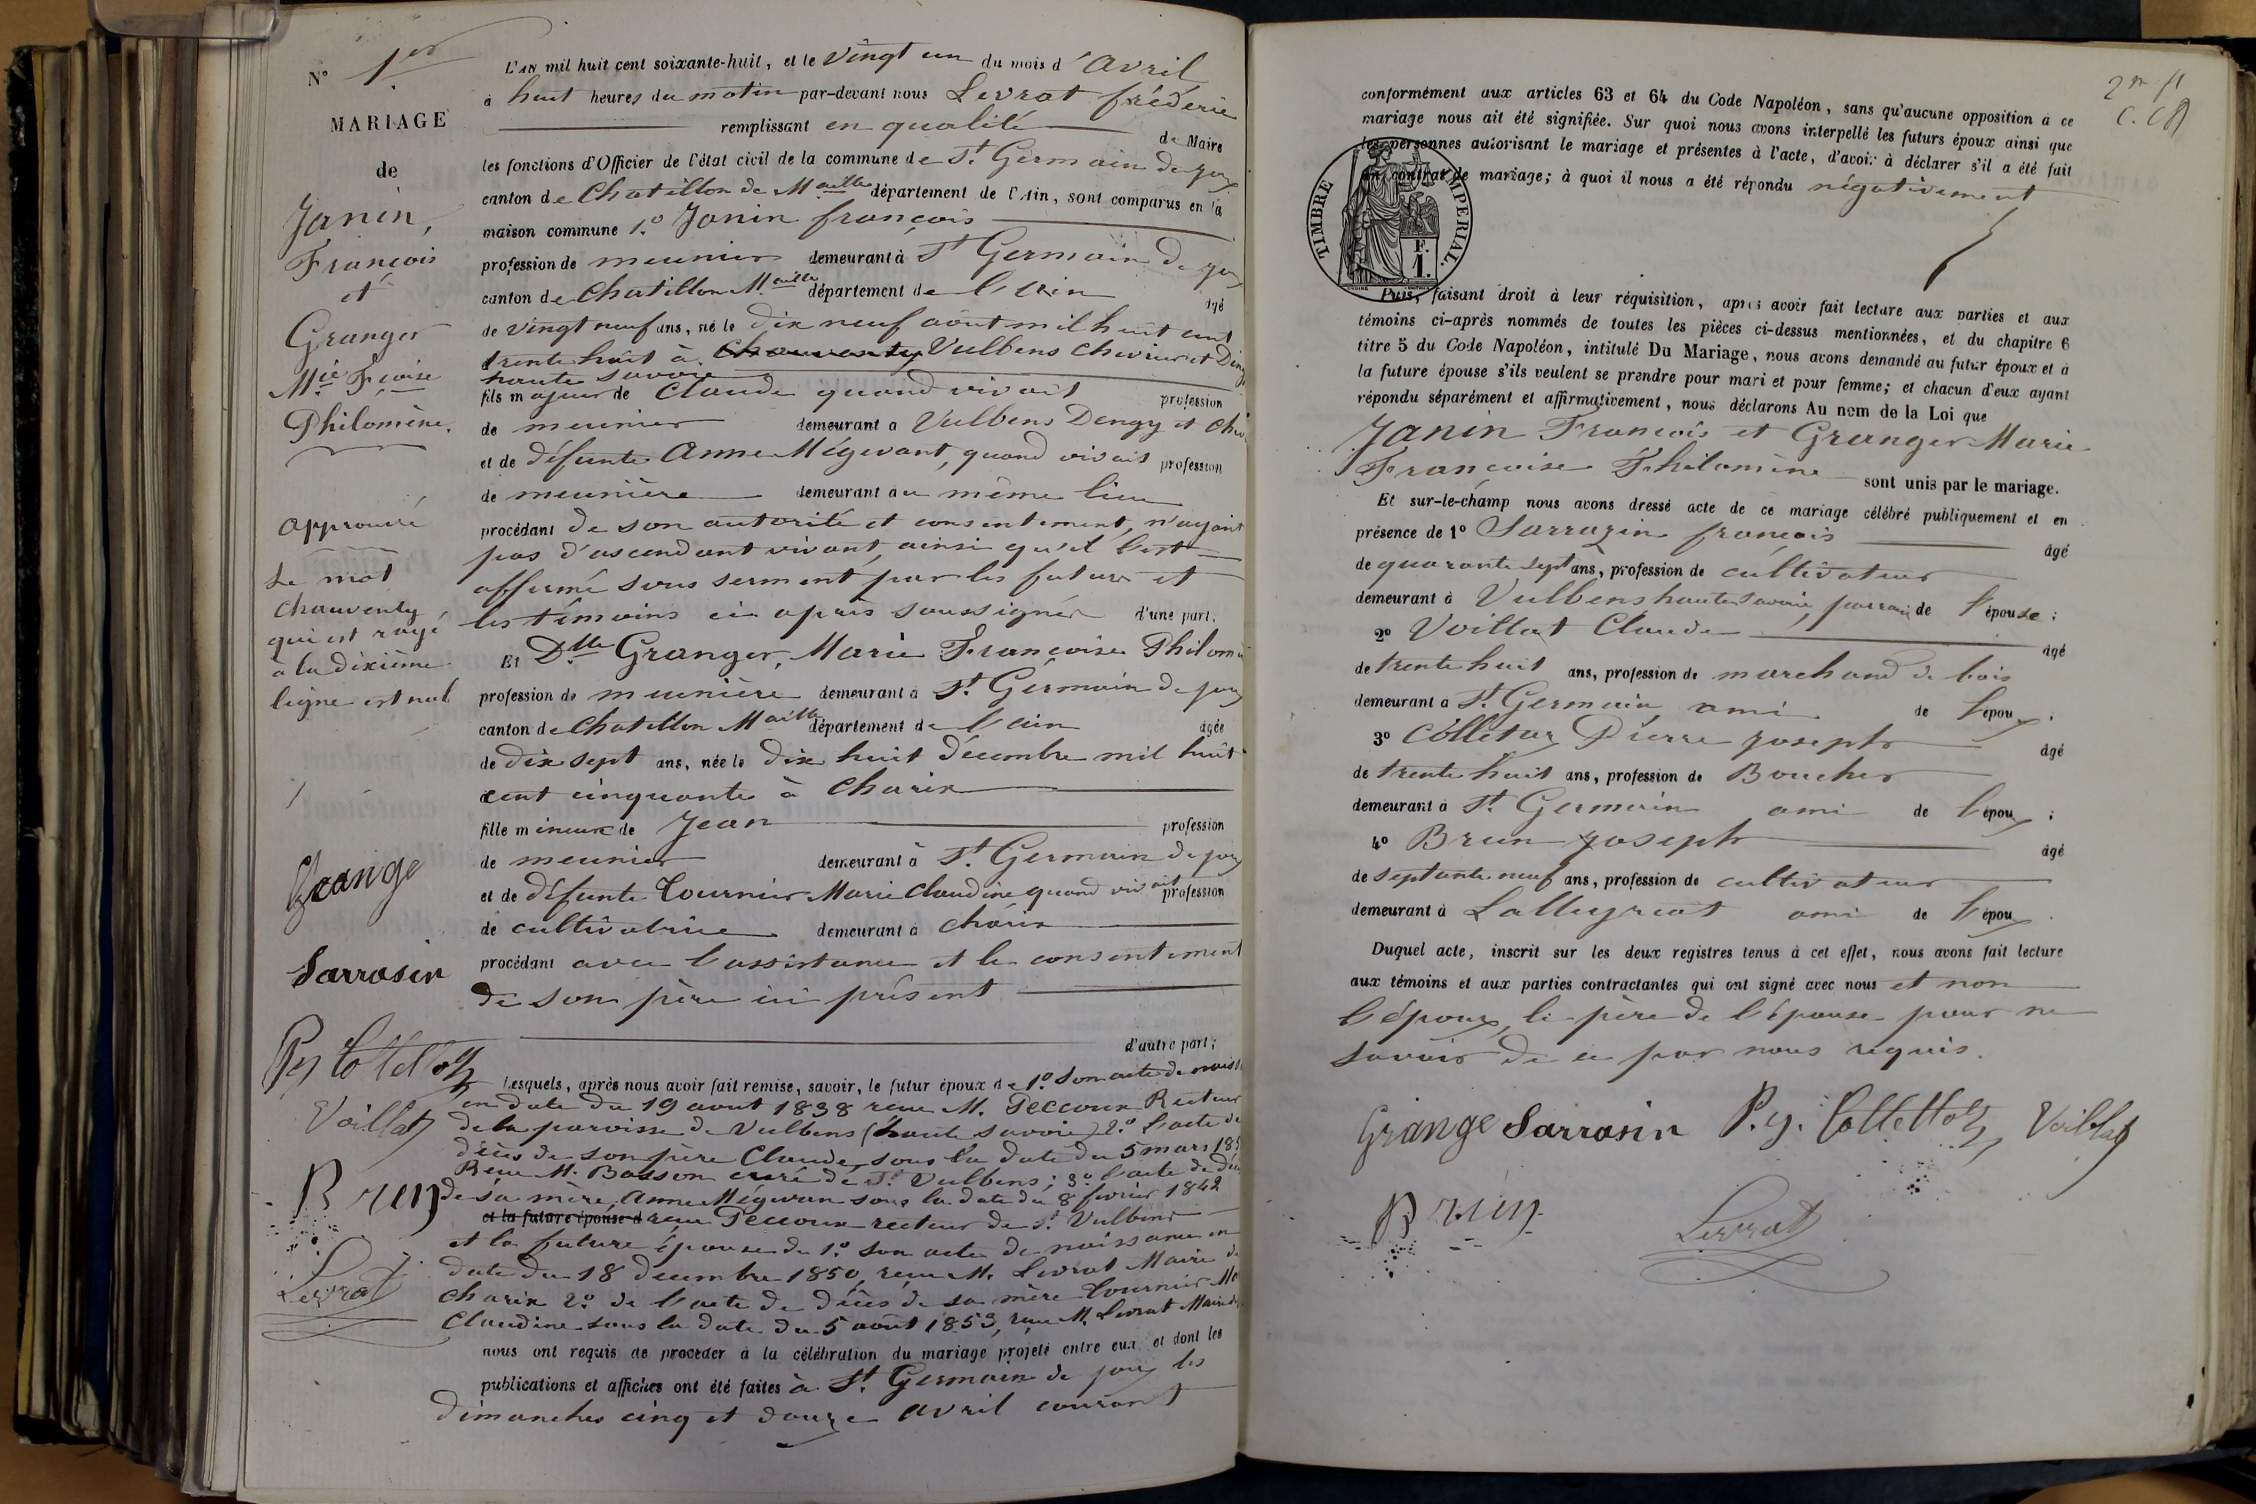 N° 1er
MARIAGE
de
Janin,
François
et
Granger
Mie Fçoise
Philomène.
approuvé
le mot
Chauventy,
qui est rayé
à la dixième
ligne est nul
Grange
Sarrasin
Py Collettaz
Voillat
Brun
Levrat
L'AN mil huit cent soixante-huit, et le vingt un du mois d'Avril
à huit heures du matin par-devant nous Levrat fréderic
remplissant en qualité de Maire
les fonctions d'Officier de l'état civil de la commune de St. Germain de joux
canton de Chatillon de Maille département de l'Ain, sont comparus en la
maison commune 1.° Janin françois
profession de meunier demeurant à St Germain de joux
canton de Chatillon Maille département de l'ain âgé
de vingt neuf ans, né le dix neuf août mil huit cent
trente huit à Chauventy Vulbens Chevrier et Deng
haute Savoie
fils majeur de Claude quand vivait profession
de meunier demeurant à Vulbens Dengy et Chev
et de défunte Anne Mégevant, quand vivait profession
de meunière demeurant au même lieu
procédant de son autorité et consentement, n'ayant
pas d'ascendant vivant, ainsi qu'il l'est
affirmé sous serment par les futurs et
les témoins ci après soussignés d'une part.
Et Dlle Granger, Marie Françoise Philom
profession de meunière demeurant à St. Germain de joux
canton de Chatillon Maille département de l'ain âgée
de dix sept ans, née le dix huit décembre mil huit
cent cinquante à Charix
fille mineure de Jean profession
de meunier demeurant à St. Germain de joux
et de défunte Tournier Marie Claudine quand vivait profession
de cultivatrice demeurant à Charix
procédant avec l'assistance et le consentement
de son père ici présent
d'autre part;
Lesquels, après nous avoir fait remise, savoir, le futur époux de 1.° Son acte de naiss
en date du 19 avout 1838 reçu M. Peccoux Recteur
de la paroisse de Vulbens (haute savoie) 2.° L'acte de
décès de son père Claude, sous la date du 5 mars 18
Reçu M. Basson curé de St. Vulbens; 3.° l'acte de déc
de sa mère, Anne Mégevan sous la date du 8 février 1842
et la future épouse d reçu Peccoux recteur de St. Vulbens
et la future épouse du 1.° Son acte de naissance en
date du 18 decembre 1850, reçu M. Levrat Maire de
Charix 2.° de l'acte de décès de sa mère Tournier Ma
Claudine sous la date du 5 août 1853, reçu M. Levrat Maire d
nous ont requis de procéder à la célébration du mariage projeté entre eux et dont les
publications et affiches ont été faites à St. Germain de joux les
dimanches cinq et douze avril courant
conformément aux articles 63 et 64 du Code Napoléon, sans qu'aucune opposition à ce
mariage nous ait été signifiée. Sur quoi nous avons interpellé les futurs époux ainsi que
les personnes autorisant le mariage et présentes à l'acte, d'avoir à déclarer s'il a été fait
un contrat de mariage; à quoi il nous a été répondu négativement
TIMBRE IMPERIAL.
F.
1.
Puis, faisant droit à leur réquisition, après avoir fait lecture aux parties et aux
témoins ci-après nommés de toutes les pièces ci-dessus mentionnées, et du chapitre 6
titre 5 du Code Napoléon, intitulé Du Mariage, nous avons demandé au futur époux et à
la future épouse s'ils veulent se prendre pour mari et pour femme; et chacun d'eux ayant
répondu séparément et affirmativement, nous déclarons Au nom de la Loi que
Janin François et Granger Marie
Françoise Philomène sont unis par le mariage.
Et sur-le-champ nous avons dressé acte de ce mariage célébré publiquement et en
présence de 1° Sarrazin françois âgé
de quarante sept ans, profession de cultivateur
demeurant à Vulbens haute Savoie, parrain de l'épouse;
2° Voillat Claude âgé
de trente huit ans, profession de marchand de bois
demeurant à St. Germain ami de l'époux;
3° Collétaz Pierre joseph âgé
de trente huit ans, profession de Boucher
demeurant à St. Germain ami de l'époux;
4° Brun joseph âgé
de septante neuf ans, profession de cultivateur
demeurant à Lalleyriat ami de l'époux.
Duquel acte, inscrit sur les deux registres tenus à cet effet, nous avons fait lecture
aux témoins et aux parties contractantes qui ont signé avec nous et non
l'époux, le père de l'épouse pour ne
savoir de ce par nous requis.
Grange Sarrasin P.y. Collettaz Voillat
Brun Levrat